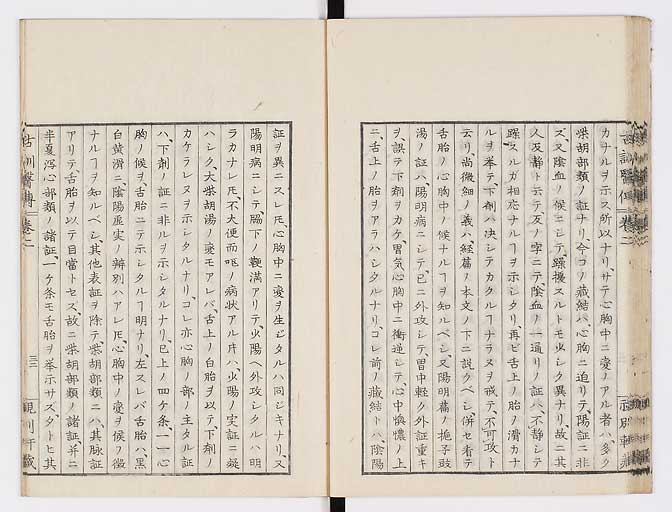 カナルヲ示ス所以ナリ、サテ心胸中ニ変ノアル者ハ多ク
柴胡部類ノ証ナリ、今コノ蔵結ハ、心胸ニ迫リテ、陽証ニ非
ズ、又陰血ノ候ニシテ、躁擾スルトモ少シク異ナリ、故ニ其
人反静ト云テ、反ノ字ニテ、陰血ノ一通リノ証ハ、不静シテ
躁スルガ相応ナルヿヲ示シタリ、再ビ舌上ノ胎ノ滑カナ
ルヲ挙テ、下剤ハ決シテカクルヿナラヌヲ戒テ、不可攻ト
云リ、尚微細ノ義ハ、経篇ノ本文ノ下ニ説クベシ、併セ看テ
舌胎ノ心胸中ノ候ナルヿヲ知ルベシ、又陽明篇ノ梔子豉
湯ノ証ハ、陽明病ニシテ、已ニ外攻シテ、胃中軽ク外証重キ
ヲ、誤テ下剤ヲカケ胃気心胸中ニ衝逆シテ、心中懊憹ノ上
ニ、舌上ノ胎ヲアラハシタルナリ、コレ前ノ蔵結トハ、陰陽
証ヲ異ニスレ𪜈、心胸中ニ変ヲ生ジタルハ同ジキナリ、又
陽明病ニシテ、脇下ノ鞕満アリテ、少陽ヘ外攻シタルハ明
ラカナレ𪜈、不大便而呕ノ病状アル片ハ、少陽ノ実証ニ疑
ハシク、大柴胡湯ノ変モアレバ、舌上ノ白胎ヲ以テ、下剤ノ
カケラレヌヲ示シタルナリ、コレ亦心胸ノ部ノ主タル証
ハ、下剤ノ証ニ非ルヲ示シタルナリ、已上ノ四ケ条、一一心
胸ノ候ヲ舌胎ニテ示シタルヿ明ナリ、左スレバ舌胎ハ、黒
白黄滑ニ陰陽虚実ノ辨別ハアレ𪜈、心胸中ノ変ヲ候フ徴
ナルヿヲ知ルベシ、其他表証ヲ除テ、柴胡部類ニハ、其脉証
アリテ舌胎ヲ以テ目当トセズ、故ニ柴胡部類ノ諸証、并ニ
半夏瀉心部類ノ諸証、一ケ条モ舌胎ヲ挙示サズ、タトヒ其
古訓醫傳
巻二